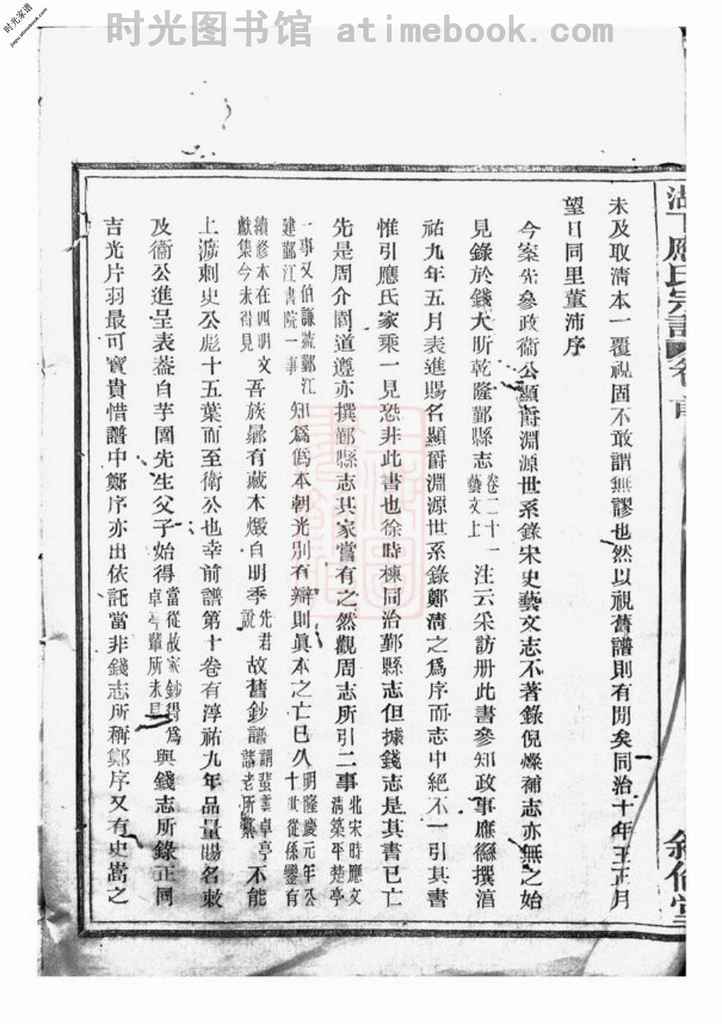 时光图书馆 atimebook.com
时光家谱
湖下應氏宗譜 卷首 敘倫堂
未及取淸本一覆視固不敢謂無謬也然以視舊譜則有閒矣同治十年王正月
望日同里董沛序
今案先參政衞公顯爵淵源世系錄宋史藝文志不著錄倪燦補志亦無之始
見錄於錢大昕乾隆鄞縣志卷二十一藝文上注云采訪册此書參知政事應㒡撰淳
祐九年五月表進賜名顯爵淵源世系錄鄭淸之爲序而志中絕不一引其書
惟引應氏家乘一見恐非此書也徐時棟同治鄞縣志但據錢志是其書已亡
先是周介閻道遵亦撰鄞縣志其家當有之然觀周志所引二事北宋時應文淸築平楚亭
一事又伯謙號鄞江建鄞江書院一事知爲僞本朝光別有辯則眞本之亡已久明隆慶元年公十世從孫鑒有
續修本在四明文獻集今未得見吾族曩有藏本燬自明季先君說故舊鈔譜謂蜚聲卓亭諸老所纂不能
上泝刺史公彪十五葉而至衞公也幸前譜第十卷有淳祐九年品量賜名敕
及衞公進呈表葢自芋園先生父子始得當從故家鈔得爲卓亭輩所未見與錢志所錄正同
吉光片羽最可寶貴惜譜中鄭序亦出依託當非錢志所稱鄭序又有史嵩之